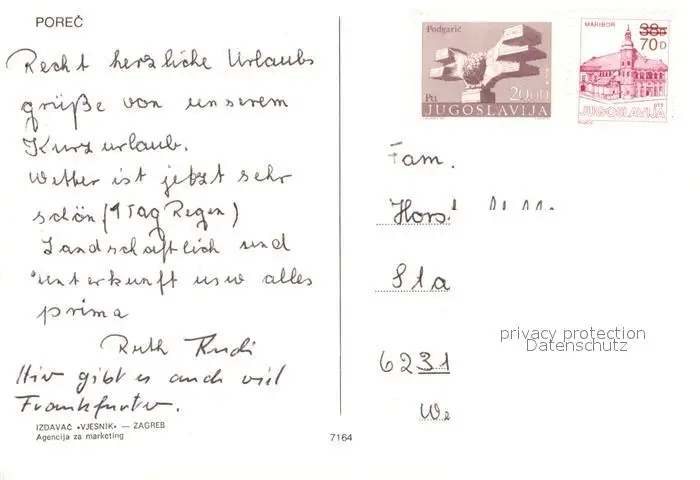 POREČ
Recht herzliche Urlaubs
grüße von unserem
Kurzurlaub.
Wetter ist jetzt sehr
schön (1 Tag Regen)
Landschaftlich und
unterkunft usw alles
prima
Ruth Rudi
Hier gibt es auch viel
Frankfurter.
IZDAVAČ «VJESNIK» — ZAGREB
Agencija za marketing
7164
Podgarić
Ptt 20.00
JUGOSLAVIJA
MARIBOR
38D
70D
ptt
JUGOSLAVIJA
Fam.
Horst
Sta
6231
We
privacy protection
Datenschutz